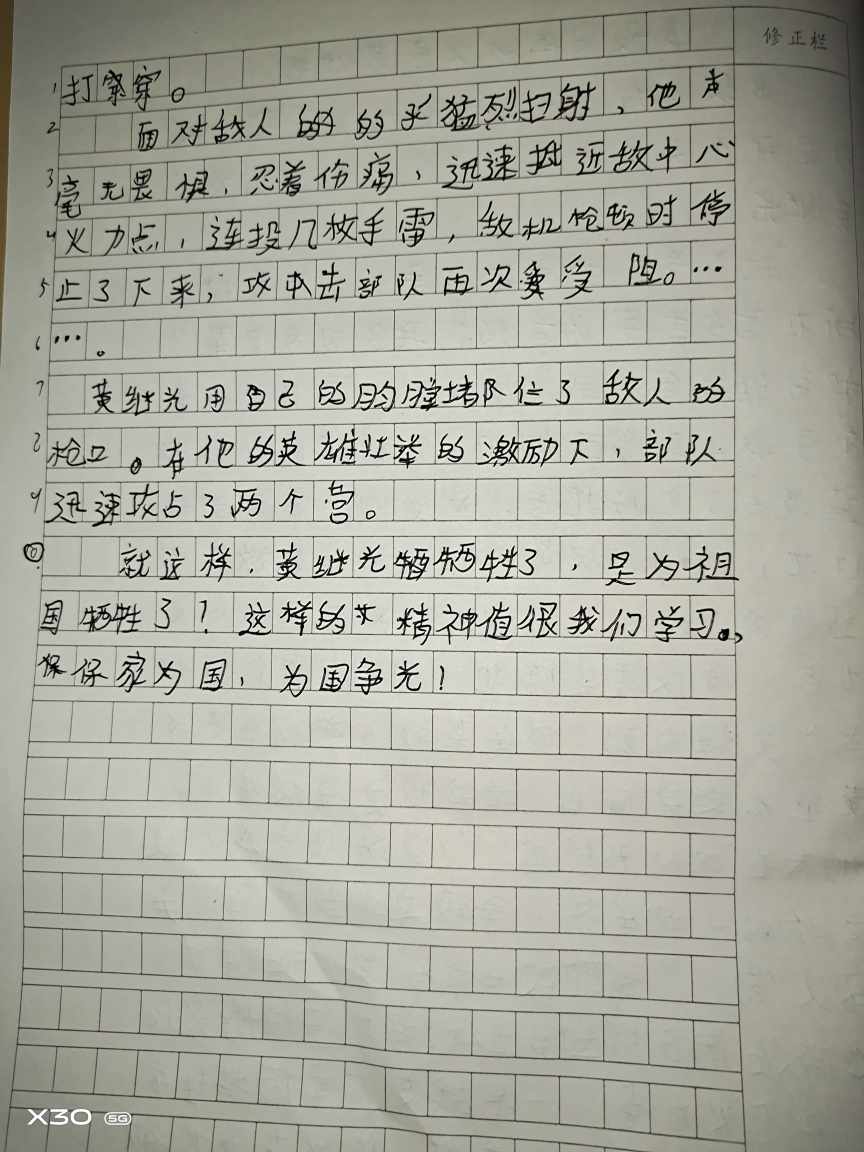 修正栏
1 打穿。
2 面对敌人的的猛烈扫射，他
3 毫无畏惧，忍着伤痛，迅速抵近敌中心
4 火力点，连投几枚手雷，敌机枪顿时停
5 止了下来，攻击部队再次受阻。…
6 …。
7 黄继光用自己的胸膛堵住了敌人的
8 枪口。在他的英雄壮举的激励下，部队
9 迅速攻占了两个营。
⑩ 就这样，黄继光牺牺牲了，是为祖
国牺牲了！这样的精神值很我们学习。，
保保家为国，为国争光！
X30 5G